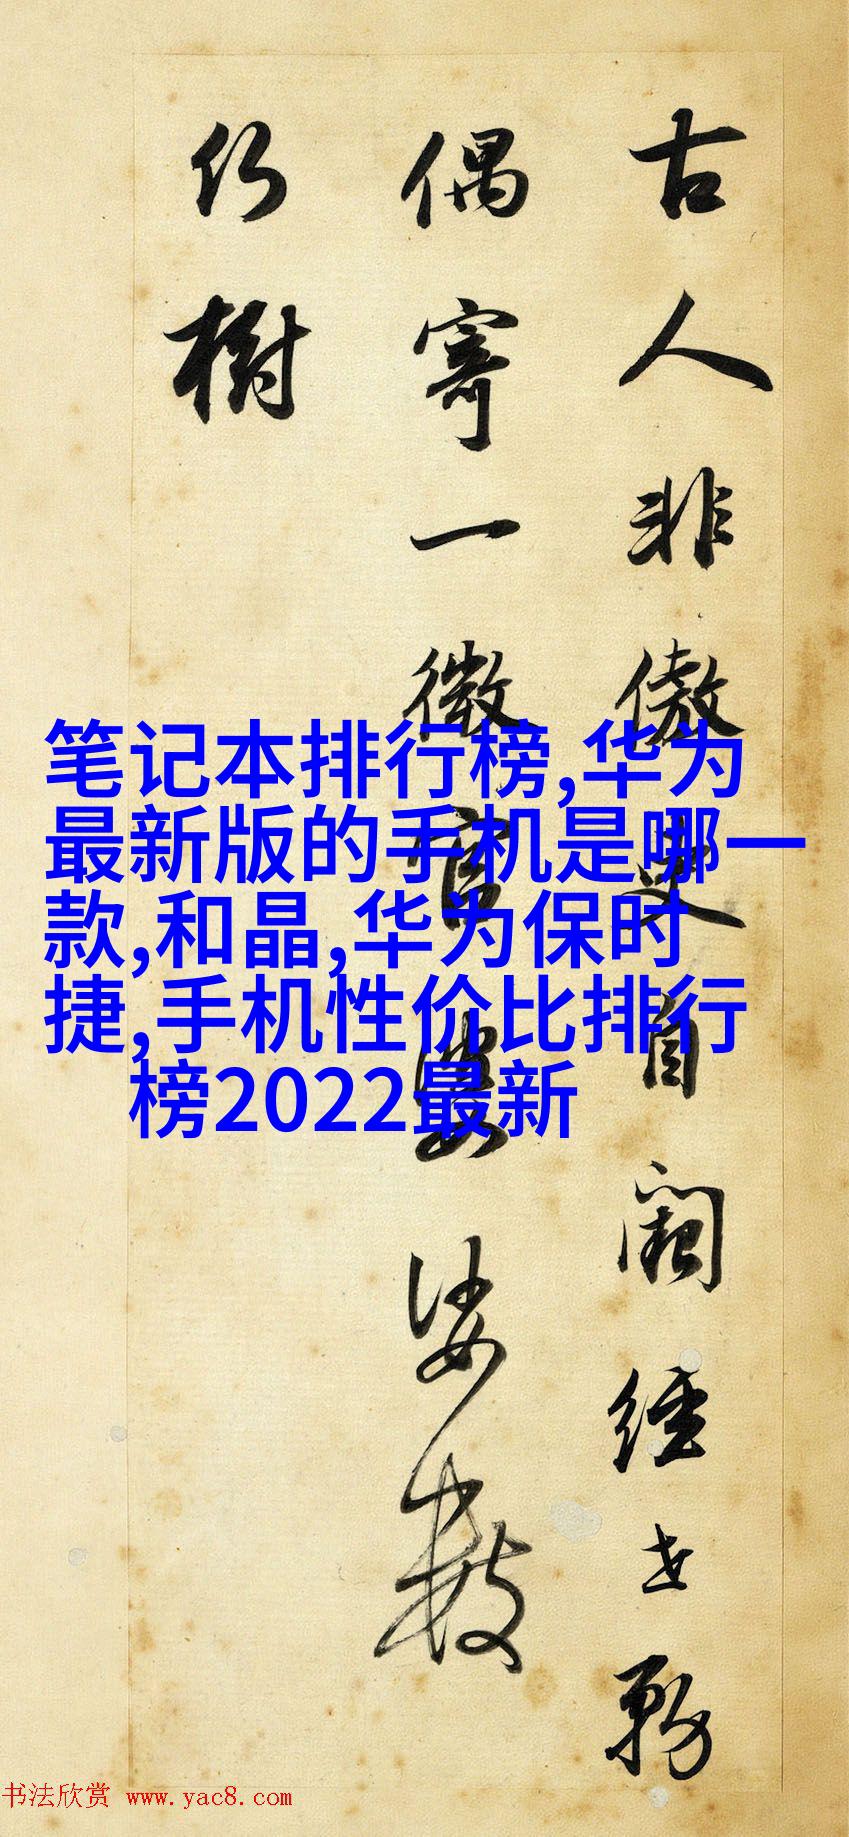 古人非傲吏自闕經世務
偶寄一微官婆娑數
樹
笔记本排行榜,华为
最新版的手机是哪一
款,和晶,华为保时
捷,手机性价比排行
榜2022最新
书法欣赏 www.yac8.com